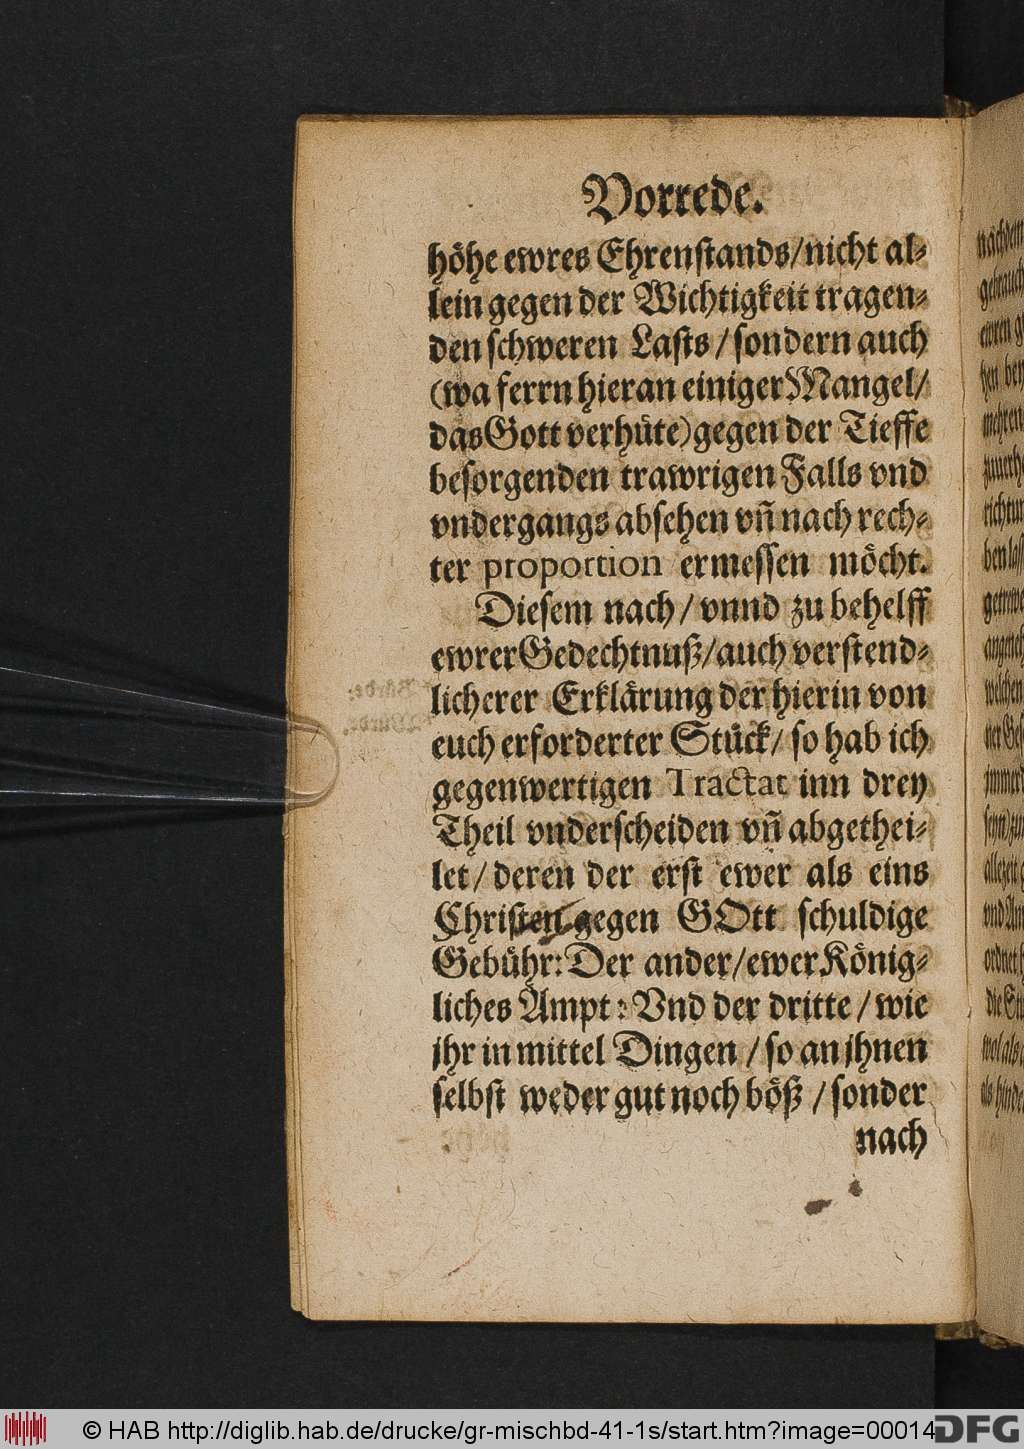 Vorrede.
höhe ewres Ehrenſtands/nicht al-
lein gegen der Wichtigkeit tragen-
den ſchweren Laſts / ſondern auch
(wa ferrn hieran einiger Mangel/
das Gott verhüte) gegen der Tieffe
beſorgenden trawrigen Falls vnd
vndergangs abſehen vñ nach rech-
ter proportion ermeſſen möcht.
Dieſem nach / vnnd zu behelff
ewrer Gedechtnuß/auch verſtend-
licherer Erklärung der hierin von
euch erforderter Stück/ ſo hab ich
gegenwertigen Tractat inn drey
Theil vnderſcheiden vñ abgethei-
let/ deren der erſt ewer als eins
Chriſten gegen GOtt ſchuldige
Gebühr: Der ander/ewer König-
liches Ampt: Vnd der dritte / wie
jhr in mittel Dingen / ſo an jhnen
ſelbſt weder gut noch böß / ſonder
nach
nachdem
© HAB http://diglib.hab.de/drucke/gr-mischbd-41-1s/start.htm?image=00014
DFG